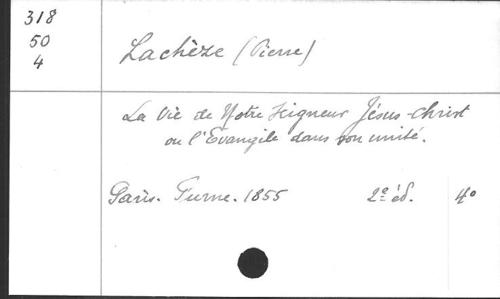 318
50
4
Lachèze (Pierre)
La Vie de Notre Seigneur Jésus-Christ
ou l'Evangile dans son unité.
Paris. Furne. 1855 2e éd. 4o